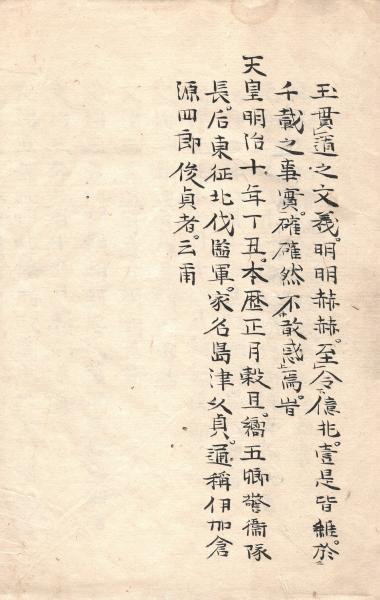 玉貫道之文義。明明赫赫。至令億兆。壹是皆繼於
千載之事實。確確然不敢惑焉。旹
天皇明治十年丁丑。本歷正月穀且。舊五卿警衞隊
長。后東征北伐監軍。家名島津久貞。通稱伊加倉
源四郎俊貞者。云爾